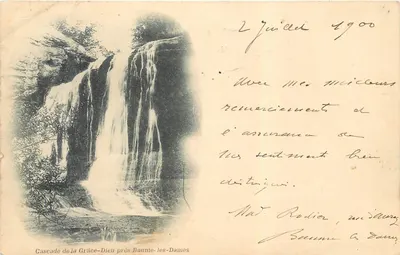 2 Juillet 1900
Avec mes meilleurs
remerciements &
l'assurance de
mes sentiments bien
distingués.
Baume les Dames
Cascade de la Grâce-Dieu près Baume-les-Dames